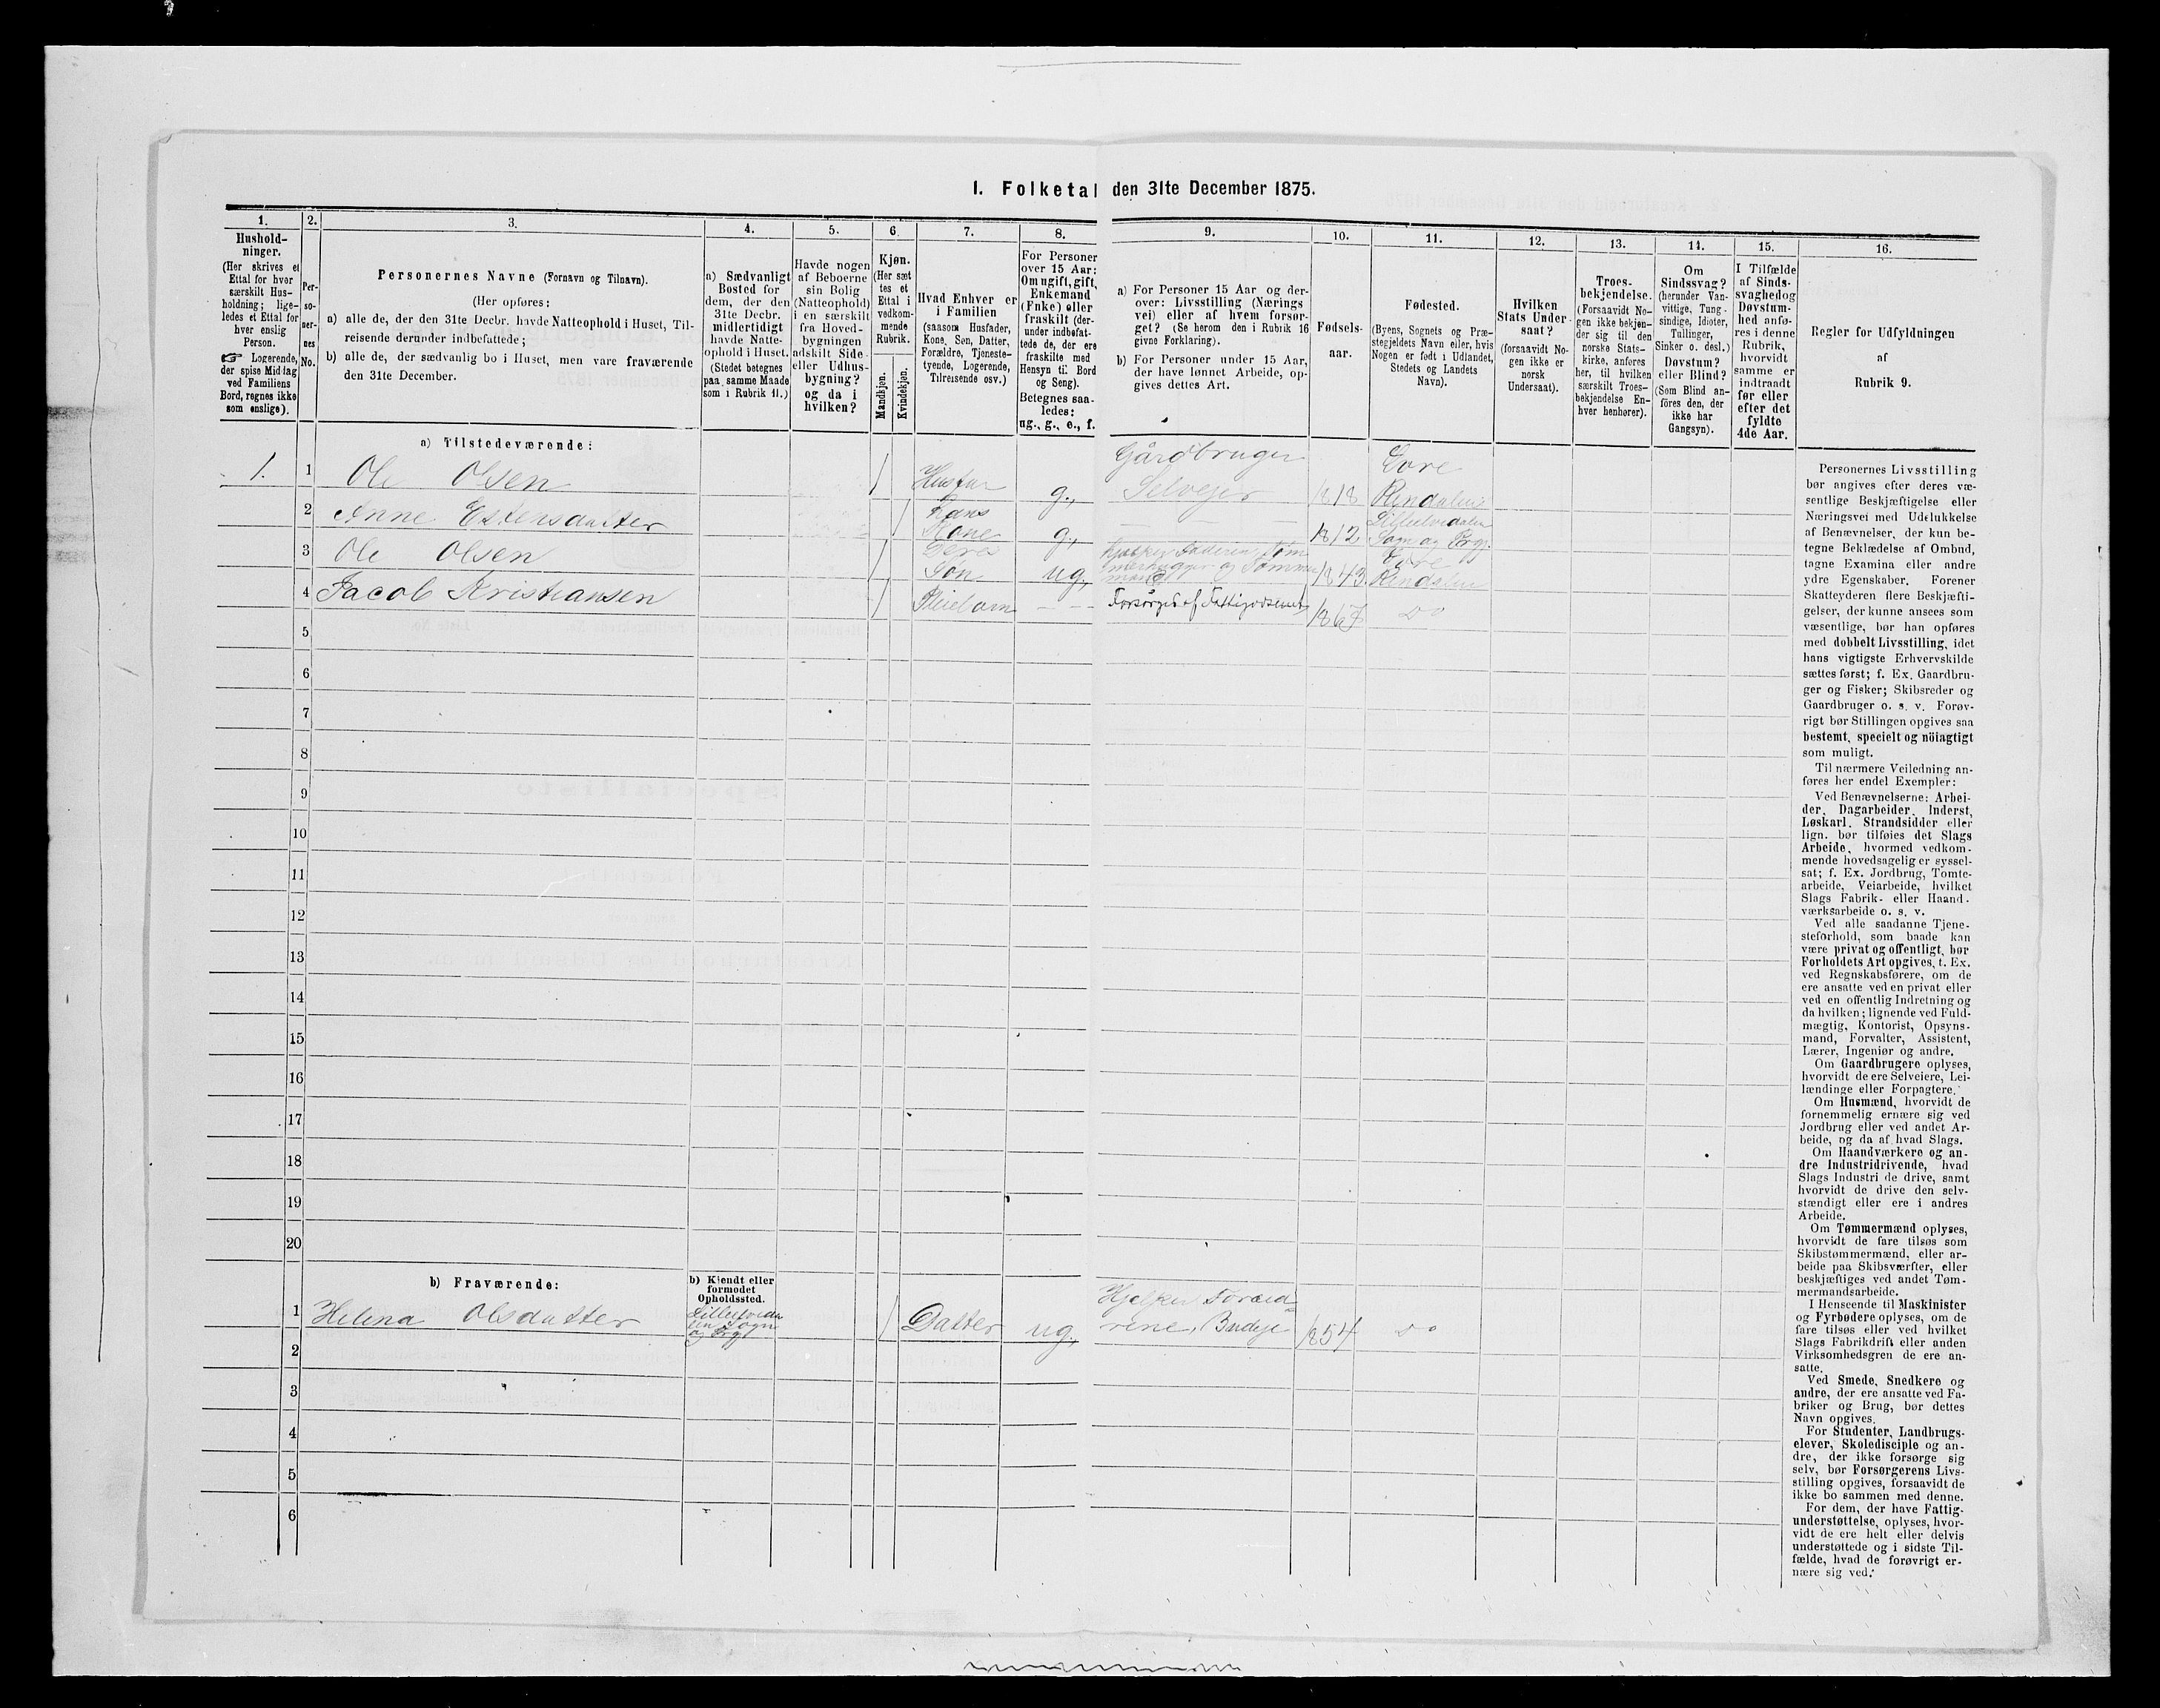 I. Folketal den 31te December 1875.
1.
Hushold-
ninger.
(Her skrives et
Ettal for hver
særskilt Hus-
holdning; lige-
ledes et Ettal for
hver enslig
Person.
☞ Logerende,
der spise Middag
ved Familiens
Bord, regnes ikke
som enslige).
2.
Per-
so-
ner-
nes
No.
3.
Personernes Navne (Fornavn og Tilnavn).
(Her opføres:
a) alle de, der den 31te Decbr. havde Natteophold i Huset, Til-
reisende derunder indbefattede;
b) alle de, der sædvanlig bo i Huset, men vare fraværende
den 31te December.
4.
a) Sædvanligt
Bosted for
dem, der den
31te Decbr.
midlertidigt
havde Natte-
ophold i Huset.
(Stedet betegnes
paa samme Maade
som i Rubrik 11.)
5.
Havde nogen
af Beboerne
sin Bolig
(Natteophold)
i en særskilt
fra Hoved-
bygningen
adskilt Side-
eller Udhus-
bygning?
og da i
hvilken?
6.
Kjøn.
(Her sæt
tes et
Ettal i
vedkom-
mende
Rubrik.
Mandkjøn.
Kvindekjøn.
7.
Hvad Enhver er
i Familien
(saasom Husfader,
Kone, Søn, Datter,
Forældre, Tjeneste-
tyende, Logerende,
Tilreisende osv.)
8.
For Personer
over 15 Aar:
Om ugift, gift,
Enkemand
(Enke) eller
fraskilt (der-
under indbefat-
tede de, der ere
fraskilte med
Hensyn til Bord
og Seng).
Betegnes saa-
ledes:
ug., g., e., f.
9.
a) For Personer 15 Aar og der-
over: Livsstilling (Nærings
vei) eller af hvem forsør-
get? (Se herom den i Rubrik 16
givne Forklaring).
b) For Personer under 15 Aar,
der have lønnet Arbeide, op-
gives dettes Art.
10.
Fødsels-
aar.
11.
Fødested.
(Byens, Sognets og Præ-
stegjeldets Navn eller, hvis
Nogen er født i Udlandet,
Stedets og Landets
Navn).
12.
Hvilken
Stats Under-
saat?
(forsaavidt No-
gen ikke er
norsk
Undersaat).
13.
Troes-
bekjendelse.
(Forsaavidt No-
gen ikke bekjen-
der sig til den
norske Stats-
kirke, anføres
her, til hvilken
særskilt Troes-
bekjendelse En-
hver henhører).
14.
Om
Sindssvag?
(herunder Van-
vittige, Tung-
sindige, Idioter,
Tullinger,
Sinker o. desl.)
Døvstum?
eller Blind?
(Som Blind an-
føres den, der
ikke har
Gangsyn).
15.
I Tilfælde
af Sinds-
svaghed og
Døvstum-
hed anfø-
res i denne
Rubrik,
hvorvidt
samme er
indtraadt
før eller
efter det
fyldte
4de Aar.
16.
Regler for Udfyldningen
af
Rubrik 9.
a) Tilstedeværende:
1. 1 Ole Olsen 1 Husfar g., Gårdbruger Selvejer 1818 Øvre Rindalen
2 Anne Estensdatter 1 Hans Kone g., 1812 Lilleelvedalen Sogn og Prgj.
3 Ole Olsen 1 Deres Søn ug, hjælper Faderen Tømmerhugger og Tømmermand 1843. Øvre Rindalen
4 Jacob Kristiansen 1 Pleiebarn — — Forsørges af Fattigvæsenet 1867 Do
5
6
7
8
9
10
11
12
13
14
15
16
17
18
19
20
b) Fraværende:
b) Kjendt eller
formodet
Opholdssted.
1 Helena Olsdatter Lilleelvedalen Sogn og Prgj 1 Datter ug, Hjelper Forældrene, Budeje 1854 Do
2
3
4
5
6
Personernes Livsstilling
bør angives efter deres væ-
sentlige Beskjæftigelse eller
Næringsvei med Udelukkelse
af Benævnelser, der kun be-
tegne Beklædelse af Ombud,
tagne Examina eller andre
ydre Egenskaber. Forener
Skatteyderen flere Beskjæfti-
gelser, der kunne ansees som
væsentlige, bør han opføres
med dobbelt Livsstilling, idet
hans vigtigste Erhvervskilde
sættes først; f. Ex. Gaardbru-
ger og Fisker; Skibsreder og
Gaardbruger o. s. v. Forøv-
rigt bør Stillingen opgives saa
bestemt, specielt og nöiagtigt
som muligt.
Til nærmere Veiledning an-
føres her endel Exempler:
Ved Benævnelserne: Arbei-
der, Dagarbeider, Inderst,
Løskarl, Strandsidder eller
lign. bør tilføies det Slags
Arbeide, hvormed vedkom-
mende hovedsagelig er syssel-
sat; f. Ex. Jordbrug, Tomte-
arbeide, Veiarbeide, hvilket
Slags Fabrik- eller Haand-
værksarbeide o. s. v.
Ved alle saadanne Tjene-
steforhold, som baade kan
være privat og offentligt, bør
Forholdets Art opgives, f. Ex.
ved Regnskabsførere, om de
ere ansatte ved en privat eller
ved en offentlig Indretning og
da hvilken; lignende ved Fuld-
mægtig, Kontorist, Opsyns-
mand, Forvalter, Assistent,
Lærer, Ingeniør og andre.
Om Gaardbrugere oplyses,
hvorvidt de ere Selveiere, Lei-
lændinge eller Forpagtere.
Om Husmænd, hvorvidt de
fornemmelig ernære sig ved
Jordbrug eller ved andet Ar-
beide, og da af hvad Slags.
Om Haandværkere og an-
dre Industridrivende, hvad
Slags Industri de drive, samt
hvorvidt de drive den selv-
stændigt eller ere i andres
Arbeide.
Om Tømmermænd oplyses,
hvorvidt de fare tilsøs som
Skibstømmermænd, eller ar-
beide paa Skibsværfter, eller
beskjæftiges ved andet Tøm-
mermandsarbeide.
I Henseende til Maskinister
og Fyrbødere oplyses, om de
fare tilsøs eller ved hvilket
Slags Fabrikdrift eller anden
Virksomhedsgren de ere an-
satte.
Ved Smede, Snedkere og
andre, der ere ansatte ved Fa-
briker og Brug, bør dettes
Navn opgives.
For Studenter, Landbrugs-
elever, Skoledisciple og an-
dre, der ikke forsørge sig
selv, bør Forsørgerens Livs-
stilling opgives, forsaavidt de
ikke bo sammen med denne.
For dem, der have Fattig-
understøttelse, oplyses, hvor-
vidt de ere helt eller delvis
understøttede og i sidste Til-
fælde, hvad de forøvrigt er-
nære sig ved.